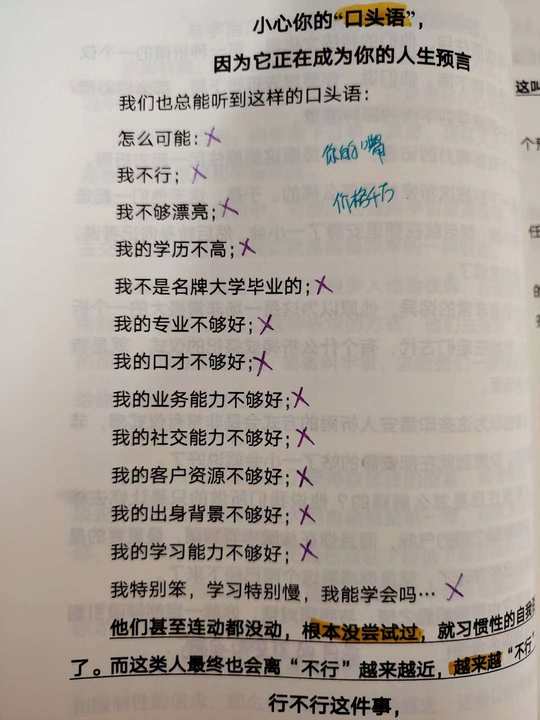 小心你的“口头语”，
因为它正在成为你的人生预言
这叫
我们也总能听到这样的口头语：
怎么可能；
你的嘴
我不行；
价格千万
我不够漂亮；
我的学历不高；
我不是名牌大学毕业的；
我的专业不够好；
我的口才不够好；
我的业务能力不够好；
我的社交能力不够好；
我的客户资源不够好；
我的出身背景不够好；
我的学习能力不够好；
我特别笨，学习特别慢，我能学会吗…
他们甚至连动都没动，根本没尝试过，就习惯性的自我
了。而这类人最终也会离“不行”越来越近，越来越“不行”
行不行这件事，